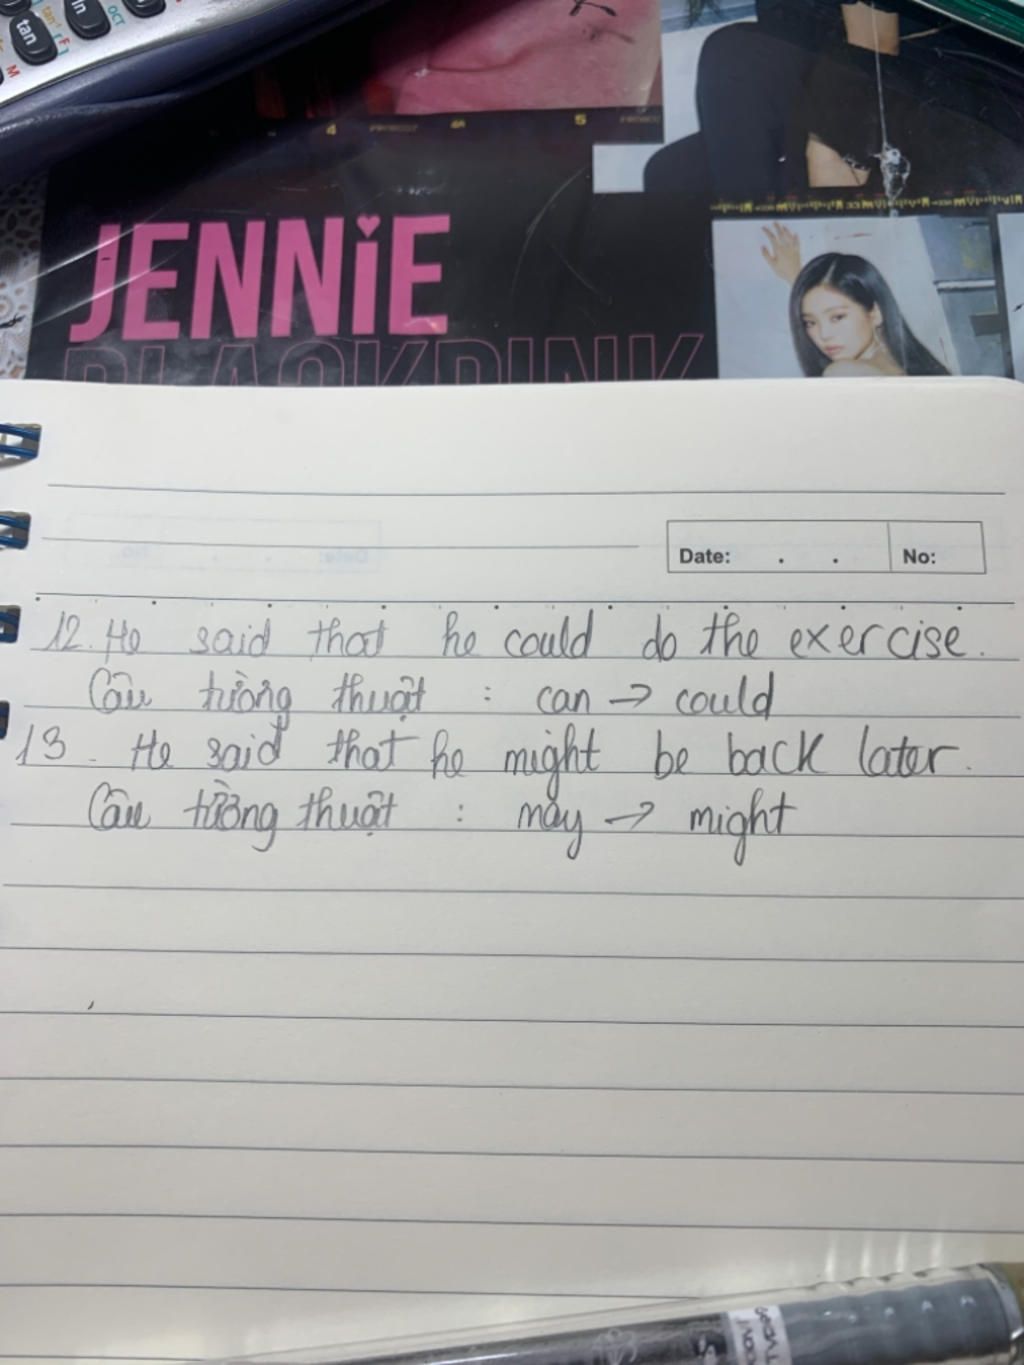 tan
tan⁻¹
[F]
ln
OCT
M
4
4A
5
JENNiE
BLACKPINK
Date: . . No:
12. He said that he could do the exercise.
Câu tường thuật : can → could
13. He said that he might be back later.
Câu tường thuật : may → might